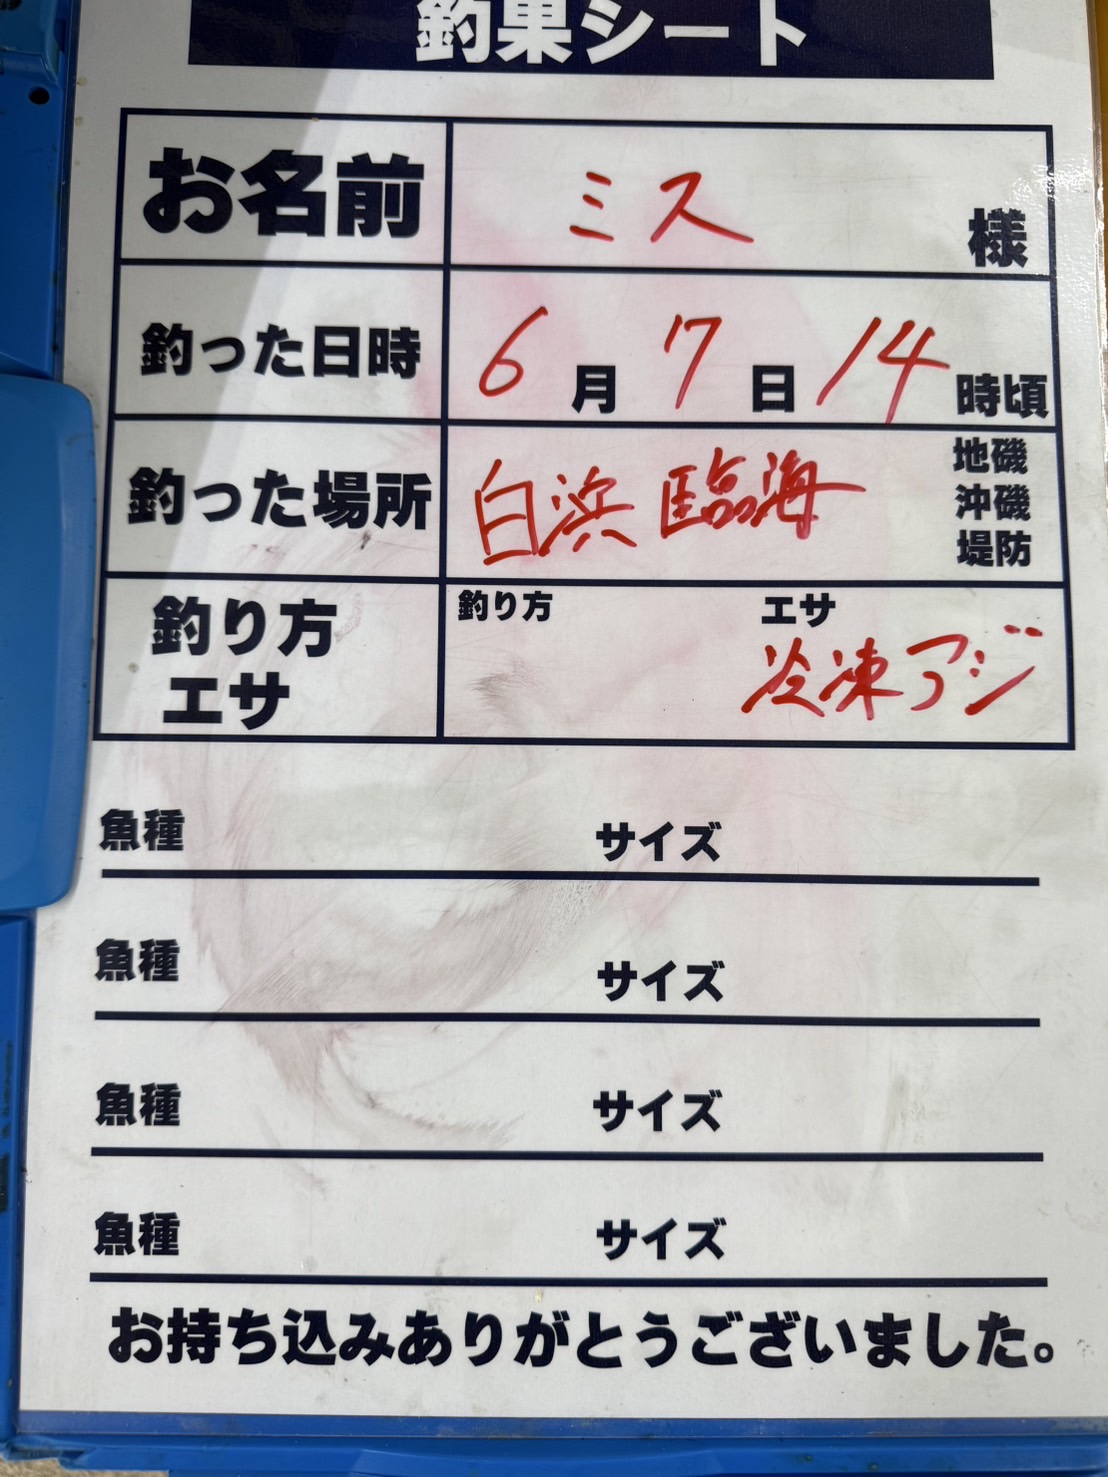 釣果シート
お名前 ミス 様
釣った日時 6月7日14時頃
釣った場所 白浜臨海 地磯
沖磯
堤防
釣り方 エサ
釣り方
エサ 冷凍アジ
魚種 サイズ
魚種 サイズ
魚種 サイズ
魚種 サイズ
お持ち込みありがとうございました。